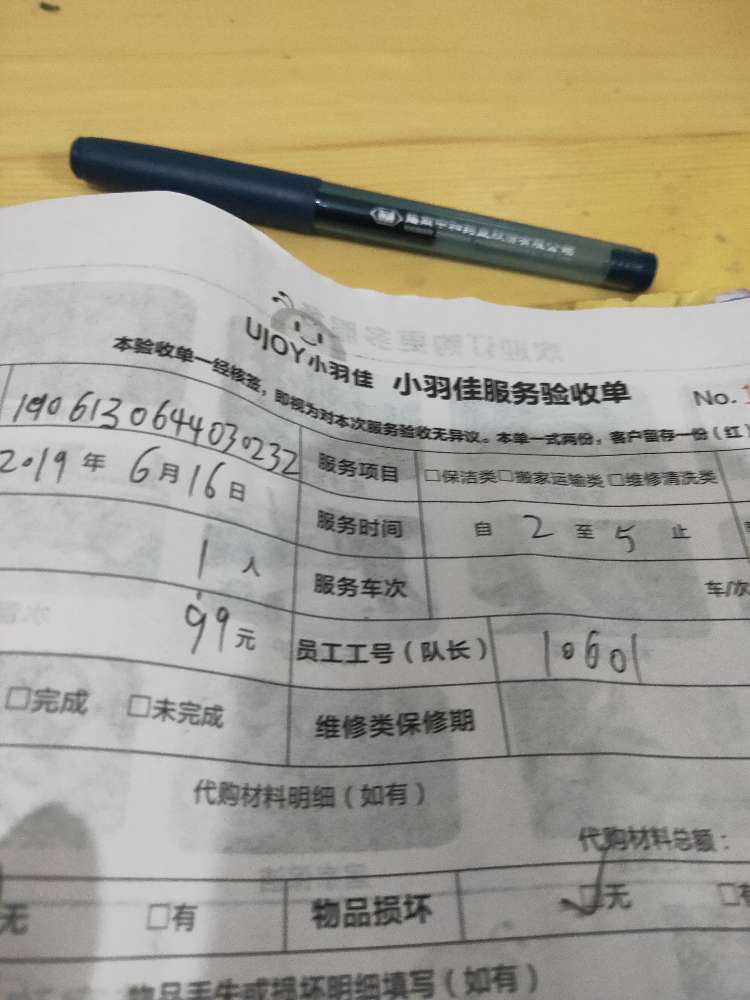 UJOY小羽佳 小羽佳服务验收单 No.
本验收单一经核签，即视为对本次服务验收无异议。本单一式两份，客户留存一份（红）
190613064403023​2 服务项目 □保洁类□搬家运输类□维修清洗类
2019年6月16日 服务时间 自 2 至 5 止
1人 服务车次 车/次
99元 员工工号（队长） 10601
□完成 □未完成 维修类保修期
代购材料明细（如有）
代购材料总额：
无 □有 物品损坏 □无 □有
物品丢失或损坏明细填写（如有）